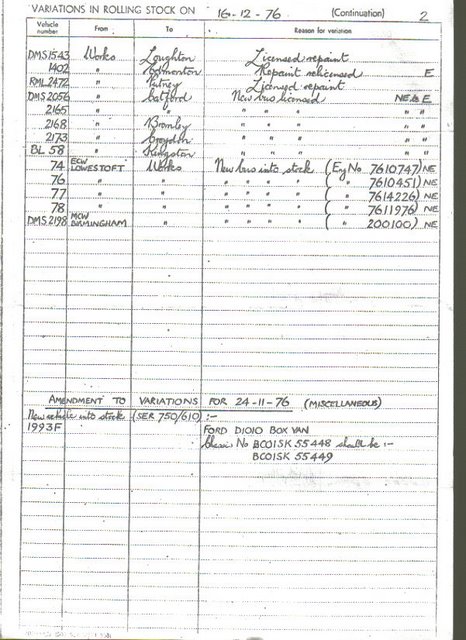 VARIATIONS IN ROLLING STOCK ON 16-12-76 (Continuation) 2
Vehicle number From To Reason for variation
DMS1543 Works Loughton Licensed repaint
1402 " Edmonton Repaint relicensed E
RML2472 " Putney Licensed repaint
DMS2056 " Catford New bus licensed NE to E
2165 " " " " " " "
2168 " Bromley " " " " "
2173 " Croydon " " " " "
BL 58 " Kingston " " " " "
74 ECW LOWESTOFT Works New bus into stock (Eng No 7610747) NE
76 " " " " " " ( " 7610451) NE
77 " " " " " " ( " 7614226) NE
78 " " " " " " ( " 7611976) NE
DMS2198 MCW BIRMINGHAM " " " " " ( " 200100) NE
AMENDMENT TO VARIATIONS FOR 24-11-76 (MISCELLANEOUS)
New vehicle into stock (SER 750/610) :-
1993F
FORD D1010 BOX VAN
Chassis No BC01SK 55448 should be :-
BC01SK 55449